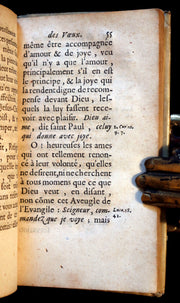 des Vœux. 55
même être accompagnée
d'amour & de joye, veu
qu'il n'y a que l'amour,
principalement s'il en est
le principe, & la joye qui
la rendent digne de recom-
pense devant Dieu, les-
quels la luy fassent rece-
voir avec plaisir. Dieu ai-
me, dit saint Paul, celuy
qui donne avec joye.
2. Cor. 9.
v. 7.
O! heureuses les ames
qui ont tellement renon-
cé à leur volonté, qu'elles
ne desirent, ni ne cherchent
à tous momens que ce que
Dieu veut, en disant,
non côme cet Aveugle de
l'Evangile: Seigneur, com-
mandez que je voye; mais
Luc. 18.
41.